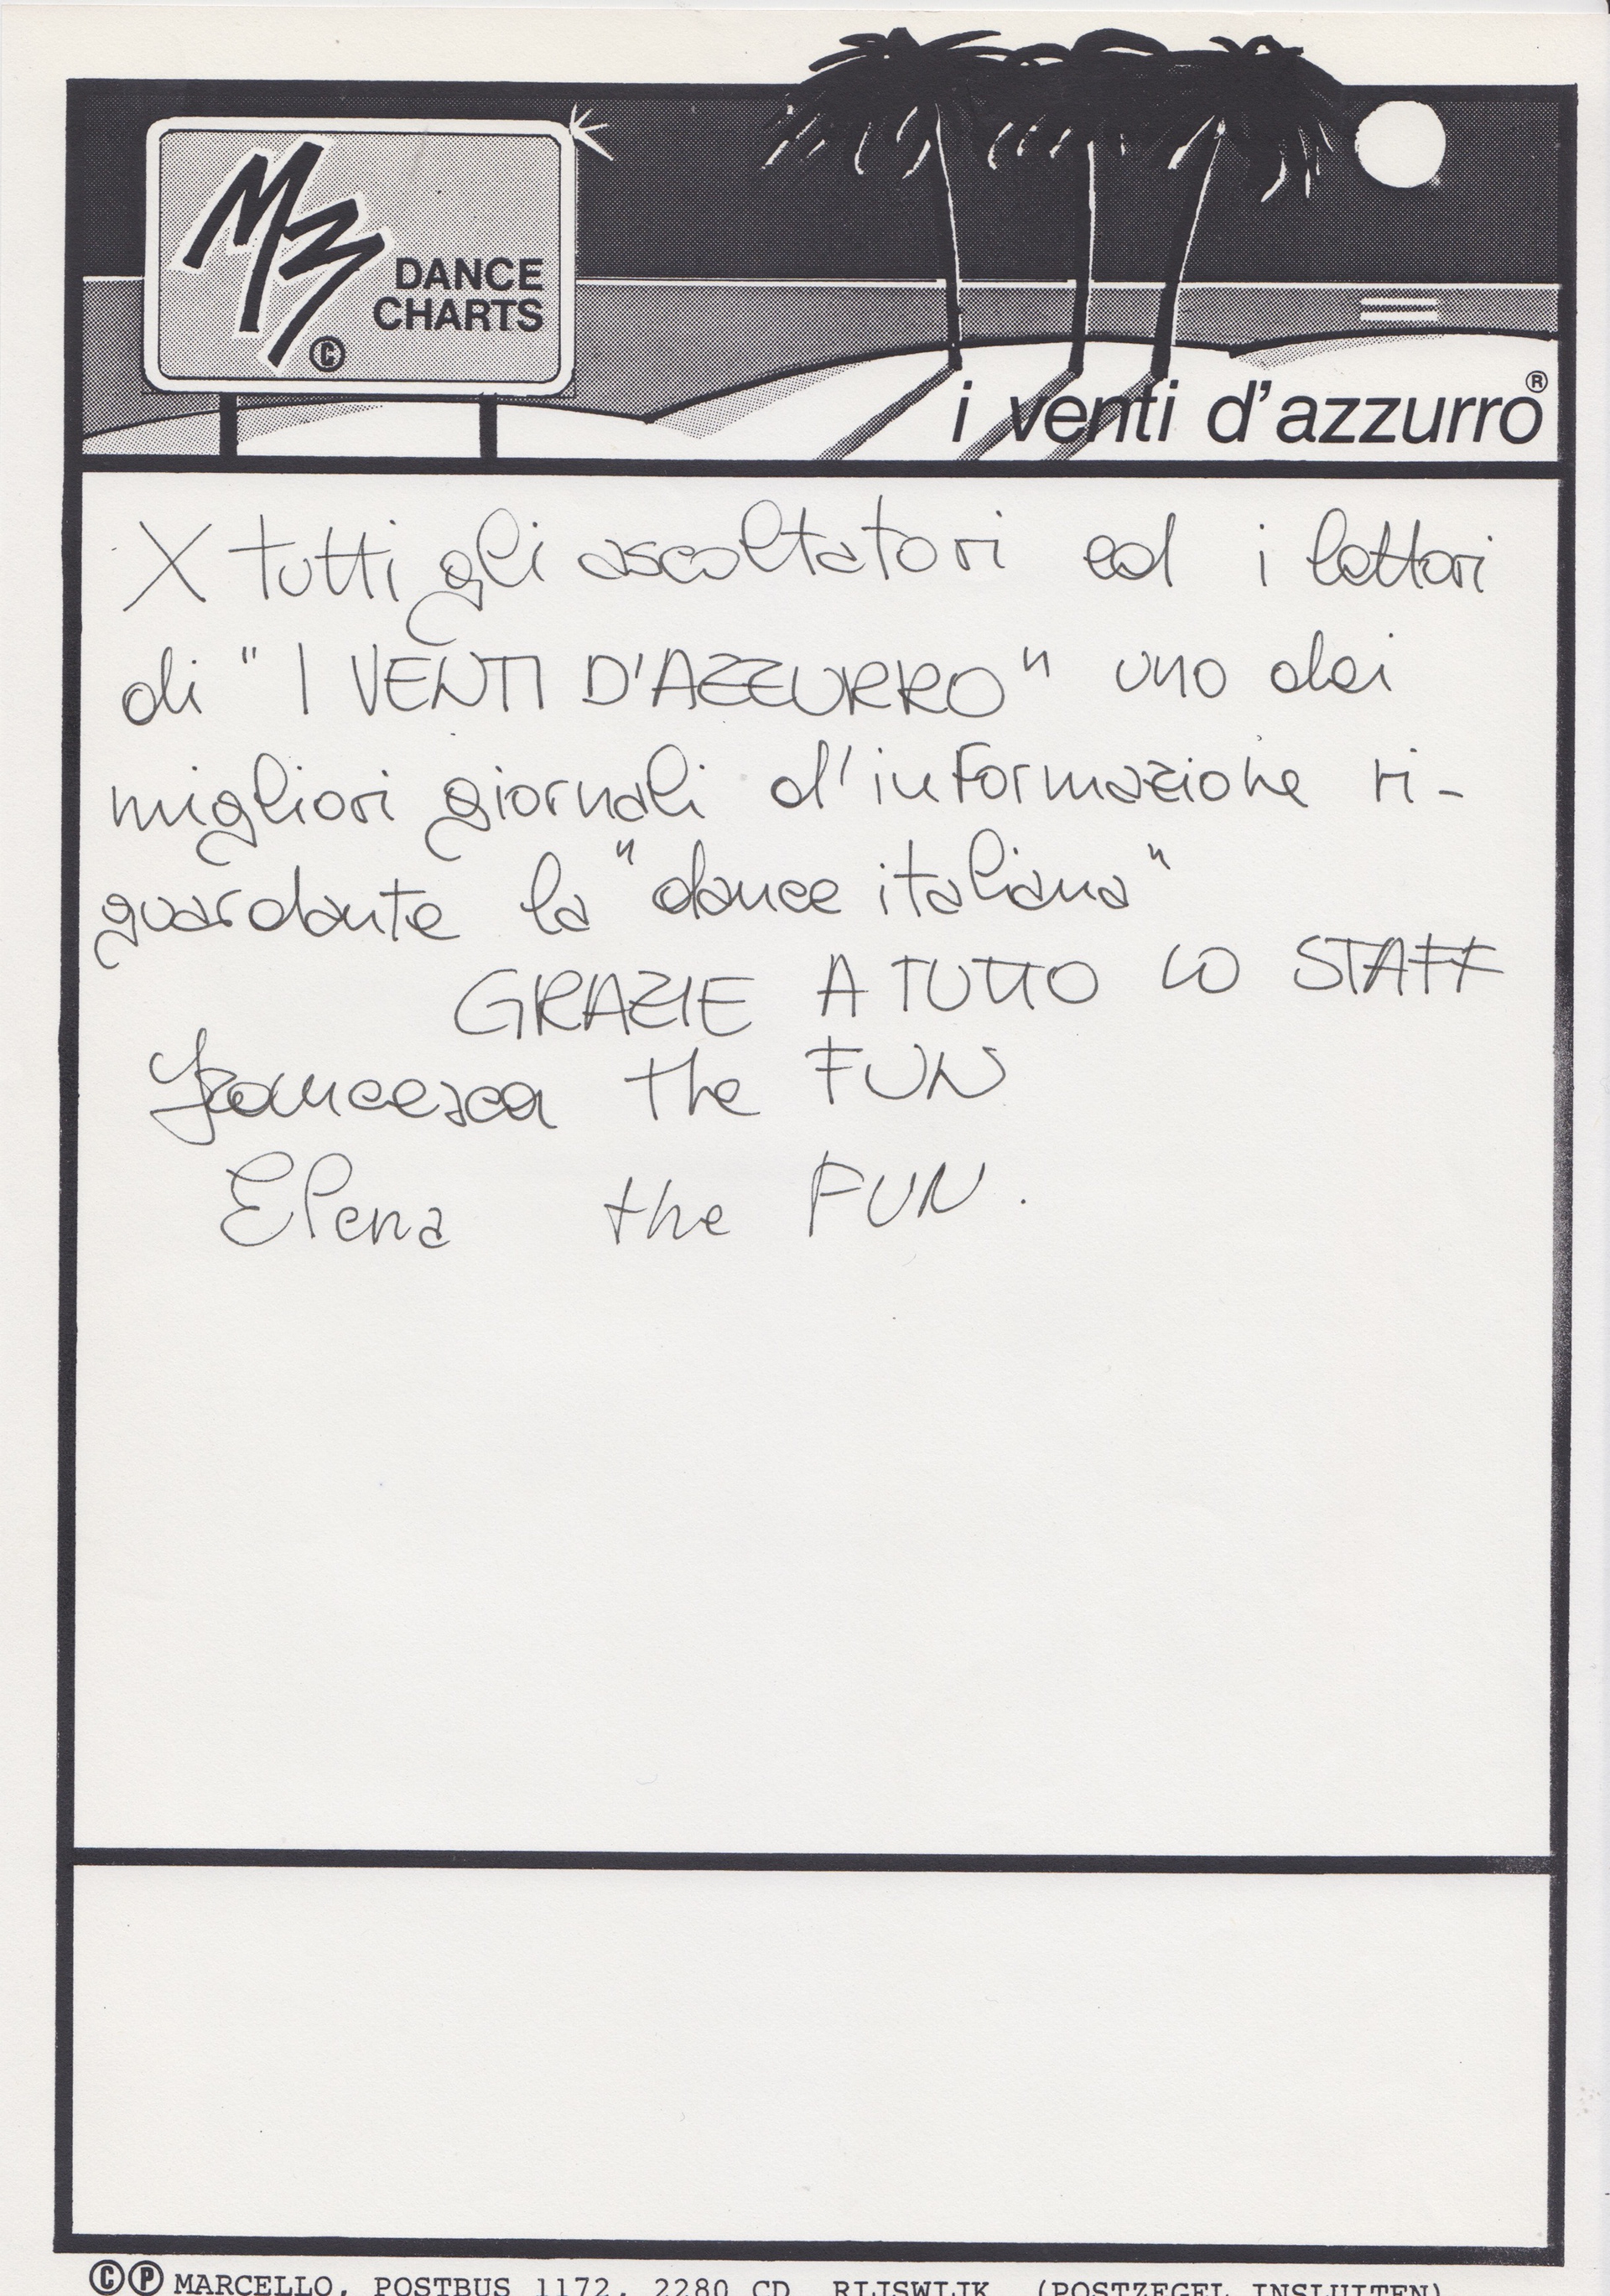 M3
DANCE
CHARTS
©
i venti d'azzurro®
X tutti gli ascoltatori ed i lettori
di "I VENTI D'AZZURRO" uno dei
migliori giornali d'informazione ri-
guardante la "dance italiana"
GRAZIE A TUTTO LO STAFF
Francesca the FUN
Elena the FUN.
©℗ MARCELLO, POSTBUS 1172, 2280 CD RIJSWIJK (POSTZEGEL INSLUITEN)